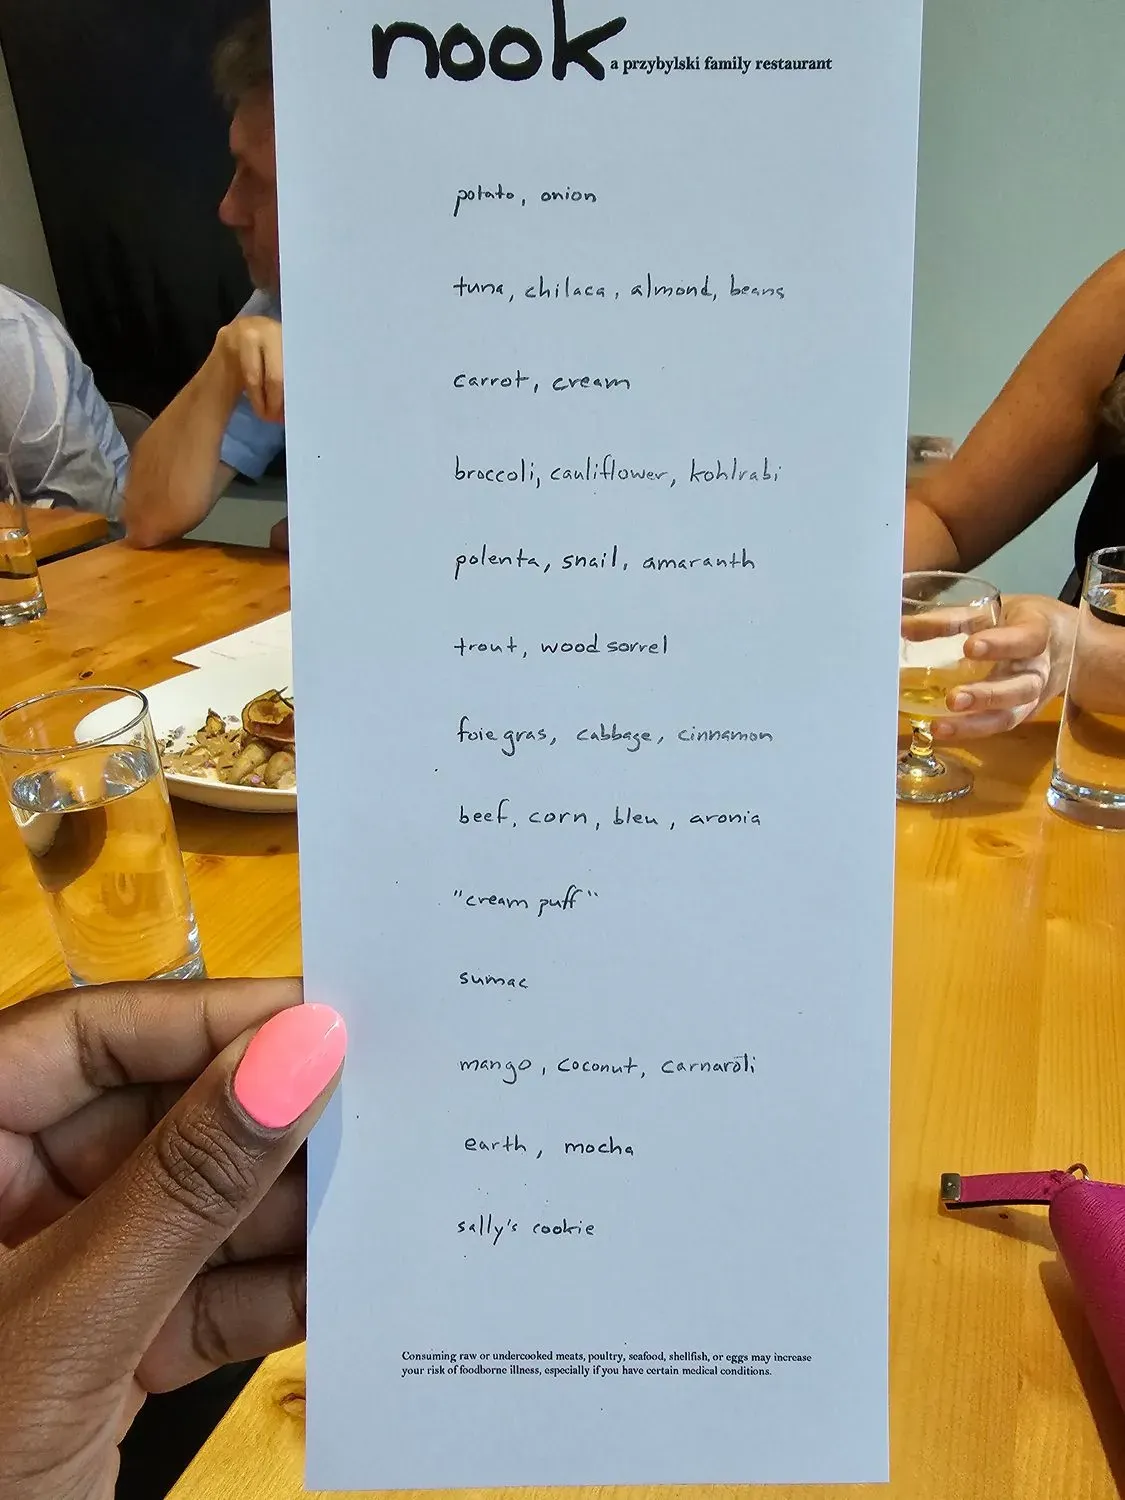 nook a przybylski family restaurant
potato, onion
tuna, chilaca, almond, beans
carrot, cream
broccoli, cauliflower, kohlrabi
polenta, snail, amaranth
trout, wood sorrel
foie gras, cabbage, cinnamon
beef, corn, bleu, aronia
"cream puff"
sumac
mango, coconut, carnaroli
earth, mocha
sally's cookie
Consuming raw or undercooked meats, poultry, seafood, shellfish, or eggs may increase
your risk of foodborne illness, especially if you have certain medical conditions.